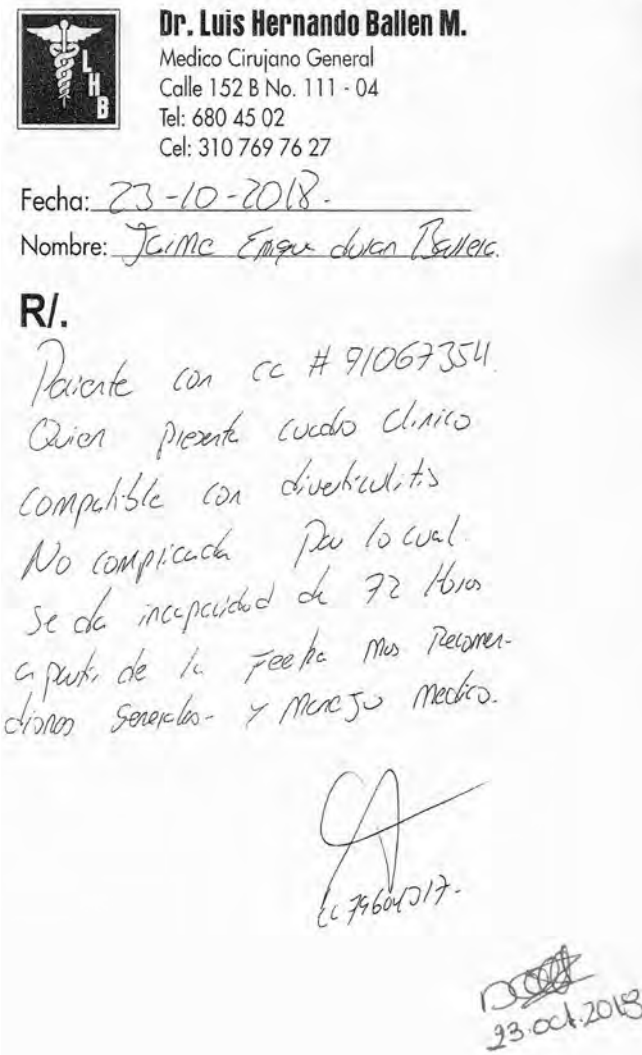 LHB
Dr. Luis Hernando Ballen M.
Medico Cirujano General
Calle 152 B No. 111 - 04
Tel: 680 45 02
Cel: 310 769 76 27
Fecha: 23-10-2018.
Nombre: Jaime Enrique duran
R/.
Paciente con cc # 91067354.
Quien presenta cuadro clinico
compatible con diverticulitis
No complicada Por lo cual.
Se da incapacidad de 72 Horas
a partir de la Fecha mas Recomen-
diones Generales- y manejo medico.
cc
23.oct.2018